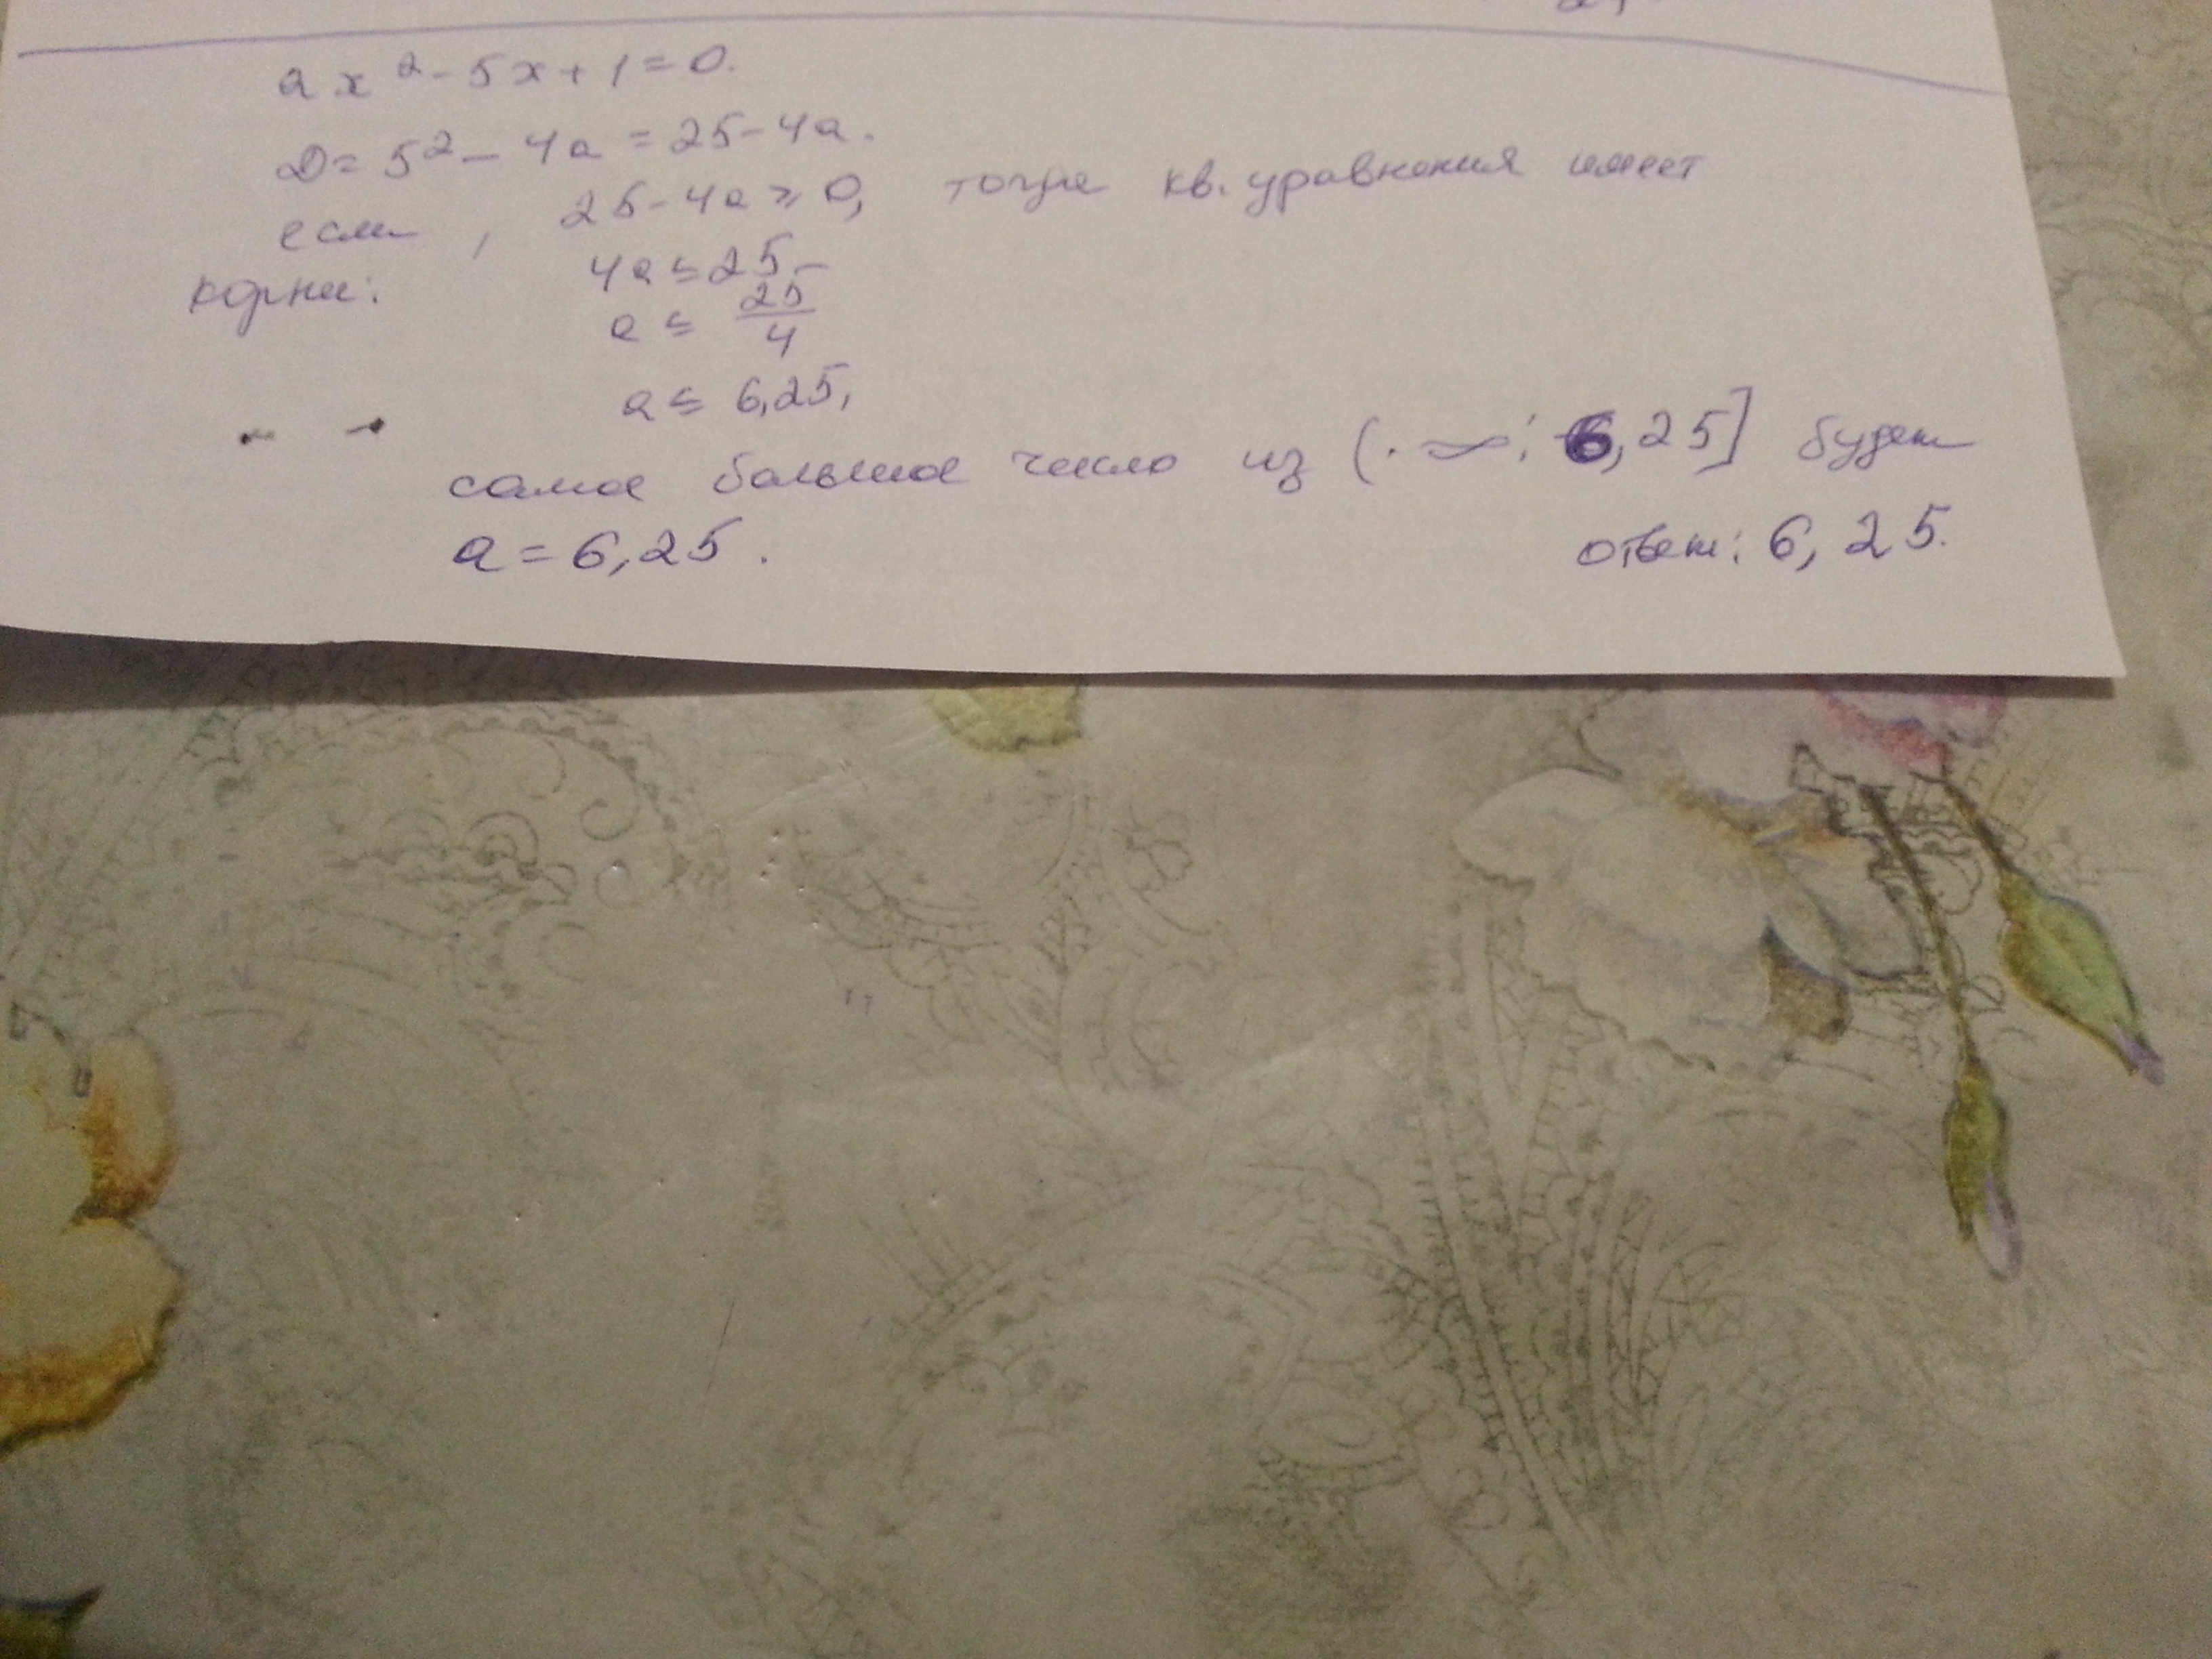 ax² - 5x + 1 = 0.
D = 5² - 4a = 25 - 4a.
если, 25 - 4a ≥ 0, тогда кв. уравнения имеет
корни: 4a ≤ 25
a ≤ 25/4
a ≤ 6,25,
самое большое число из (-∞; 6,25] будет
a = 6,25.
ответ: 6,25.